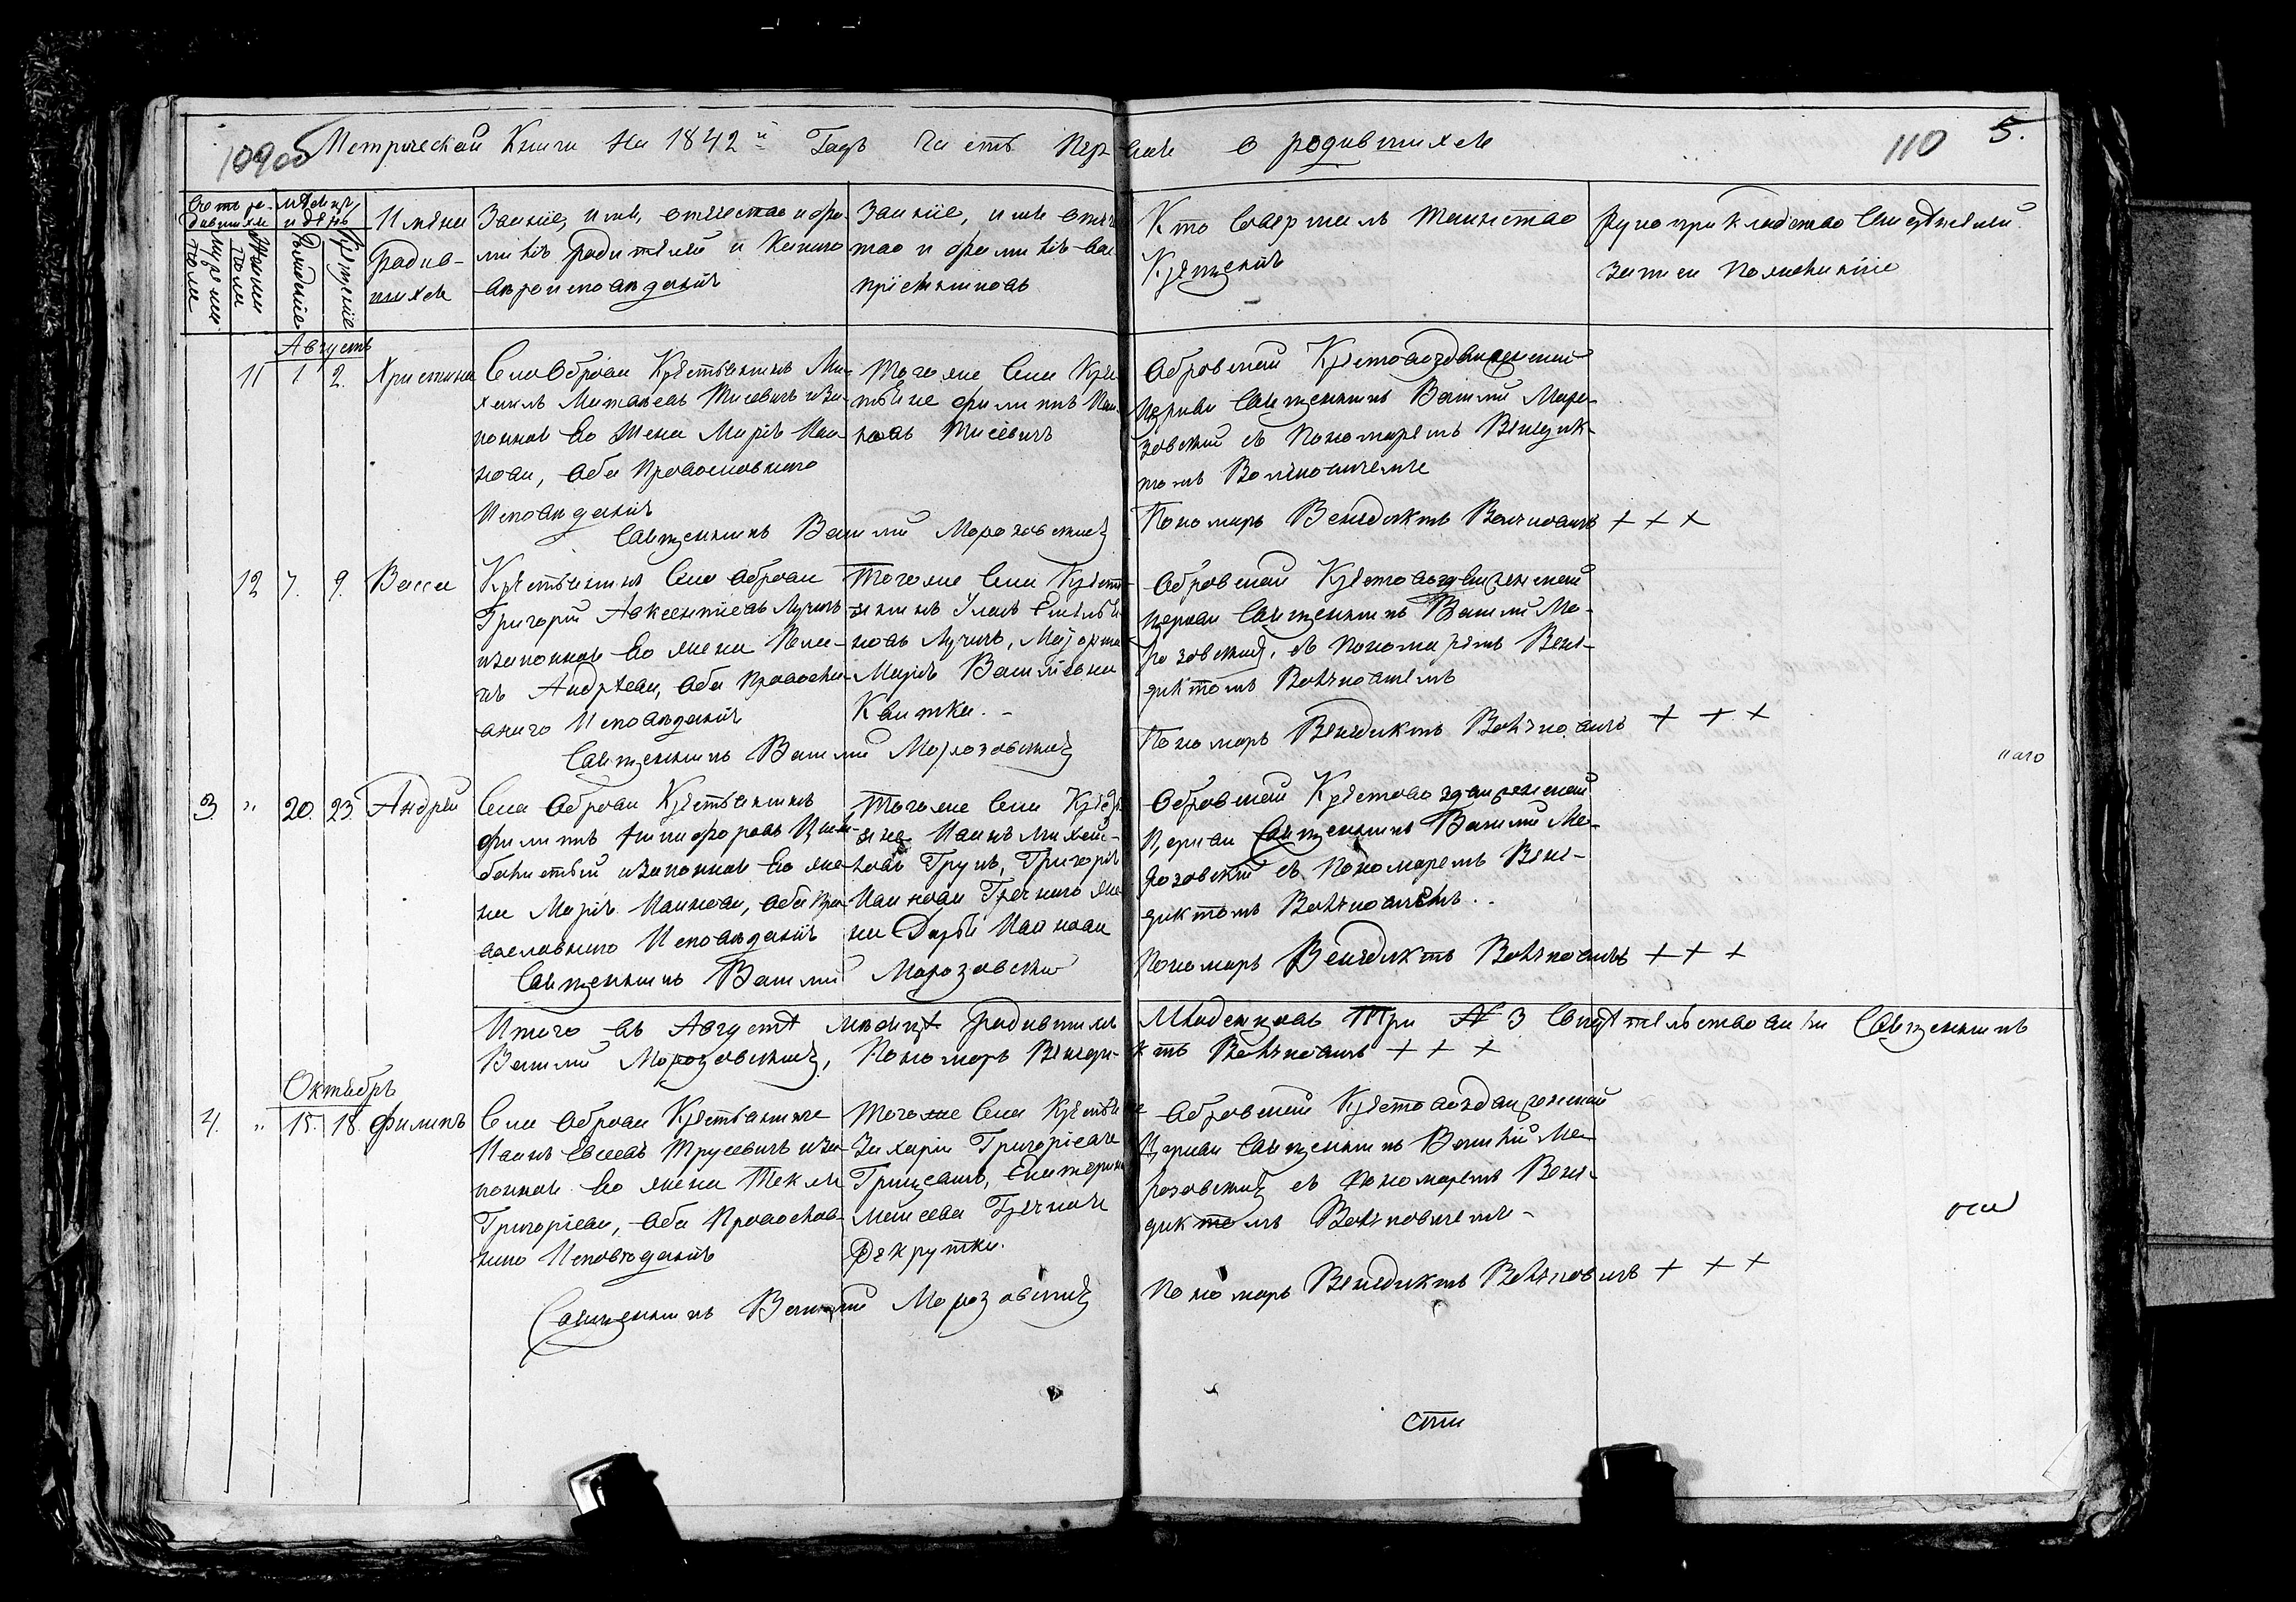 109об
Метрической Книги На 1842й Годъ Часть Первая о родившихся
110 5.
Счетъ родившихся
Мужеска пола
Женска пола
Мѣсяцъ и день
Рожденіе
Крещеніе
Имяна
Родив-
шихся
Званіе, имя, отчество и фа-
милія родителей и какого
вѣроисповѣданія
Званіе, имя отче
тво и фамилія вос
пріемниковъ
Кто Совершалъ Таинство
Крещенія
Рукоприкладство Свидѣтелей
записи по желанію
Августъ
11 1 2. Христина
Села Оброви Крестьянинъ Ми-
хаилъ Матвеевъ Мисевичъ и за-
конная Его Жена Марія Ива-
нова, оба Православнаго
Исповѣданія
Священникъ Василій Морозовский
Тогоже Села Кре
тьяне Филиппъ Ива-
новъ Мисевичъ
Обровской Крестовоздвиженской
Церкви Священникъ Василій Моро-
зовский съ Пономаремъ Венедик-
томъ
Пономарь Венедиктъ + + +
12 7. 9. Васса
Крестьянинъ Села Оброви
Григорій Авксентіевъ Лучиць
и законная Его жена Юли-
я Андреева, оба Правосла-
внаго Исповѣданія
Священникъ Василій Морозовский
Тогоже Села Кресть-
янинъ Уласъ Емелья
новъ Лучиць,
Марія Васильева
Квитка. -
Обровской Крестовоздвиженской
церкви Священникъ Василій Мо-
розовский, съ Пономаремъ Вене-
диктомъ
Пономарь Венедиктъ + + +
наго
3. " 20. 23. Андрей
Села Оброви Крестьянинъ
Филиппъ Никифоровъ
и законная Его же-
на Марія Иванова, оба Пра-
вославнаго Исповѣданія
Священникъ Василій Морозовский
Тогоже Села Крест
яне Иванъ Михай-
ловъ Груць, Григорія
Иванова Гречнаго же
на Дарья Иванова
Обровской Крестовоздвиженской
Церкви Священникъ Василій Мо-
розовский съ Пономаремъ Вене-
диктомъ
Пономарь Венедиктъ + + +
Итого въ Августѣ Мѣсяцѣ родившихъ Младенцовъ Три № 3 Свидѣтельствовали Священникъ
Василій Морозовский, Пономарь Венеди-ктъ + + +
Октябрь
4. " 15. 18. Филипъ
Села Оброви Крестьяниже
Иванъ Евсеевъ Трусевичъ и за-
конная Его жена Текля
Григоріева, оба Православ-
наго Исповѣданія
Священникъ Василій Морозовский
Тогоже Села Крестьяне
Захарій Григоріевъ
Грицевичъ, Екатерина
Моисеева Гречная
Рекрутка.
Обровской Крестовоздвиженской
Церкви Священникъ Василій Мо-
розовский съ Пономаремъ Вене-
диктомъ
Пономарь Венедиктъ + + +